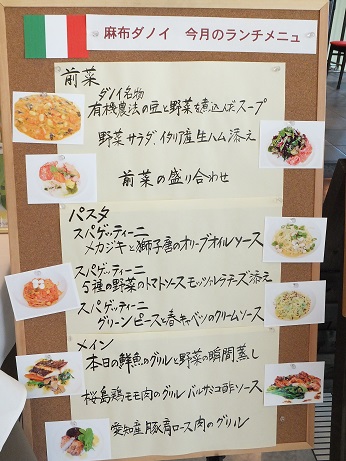 麻布ダノイ 今月のランチメニュ
前菜
ダノイ名物
有機農法の豆と野菜を煮込んだスープ
野菜サラダ イタリア産生ハム添え
前菜の盛り合わせ
パスタ
スパゲッティーニ
メカジキと獅子唐のオリーブオイルソース
スパゲッティーニ
5種の野菜のトマトソースモッツァレラチーズ添え
スパゲッティーニ
グリーンピースと春キャベツのクリームソース
メイン
本日の鮮魚のグリルと野菜の瞬間蒸し
桜島鶏モモ肉のグリル バルサミコ酢ソース
愛知産豚肩ロース肉のグリル